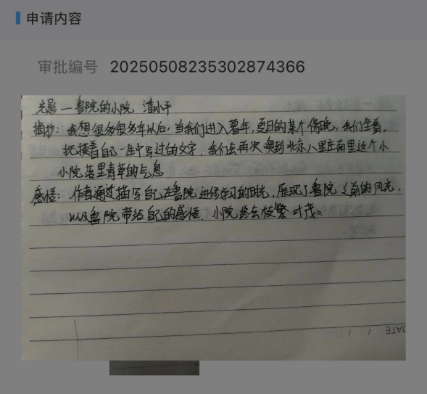 申请内容
审批编号 20250508235302874366
光影 — 鲁院的小院 潘小平
摘抄: 我想很多很多年以后, 当我们进入暮年, 夏日的某个傍晚, 我们坐着,
抚摸着自己一生中写过的文字, 我们会再次领到北京八里庄南里这个小
小院落里青草的气息
感悟: 作者通过描写自己在鲁院进修学习的时光, 展现了鲁院 的风光,
以及鲁院带给自己的感悟, 小院总会枝繁叶茂。
DATE / /